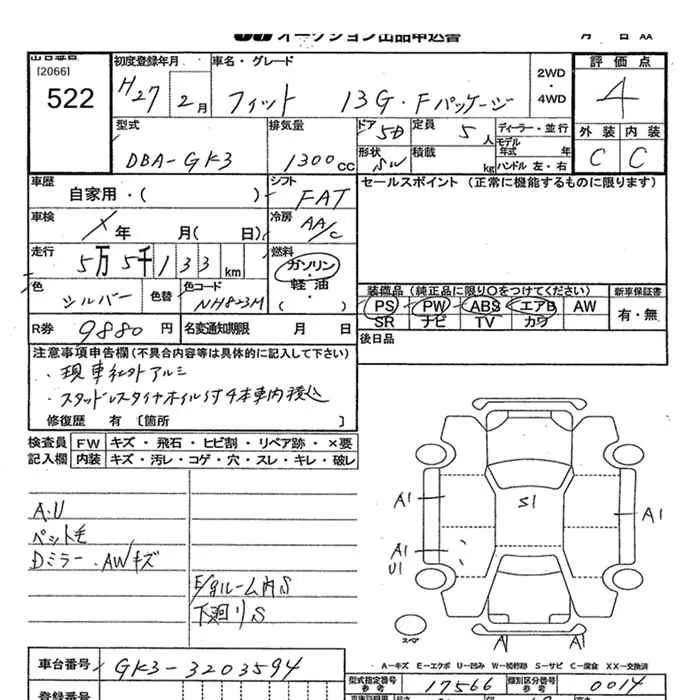 オークション出品申込書
月 日
[2066]
522
初度登録年月
H27 2月
車名・グレード
フィット 13G・Fパッケージ
2WD
・
4WD
評価点
4
外装 内装
C C
型式
DBA-GK3
排気量
1300cc
ドア 5D
定員 5人
ディーラー・並行
形状 SW
積載 kg
モデル年式 年
ハンドル 左・右
車歴
自家用・( )
シフト
FAT
セールスポイント (正常に機能するものに限ります)
車検
年 月( 日)
冷房
AA/C
走行
5万5千133km
燃料
ガソリン
・
軽油
( ・ )
色
シルバー 色替
色コード
NH823M
装備品 (純正品に限り○をつけてください)
新車保証書
PS PW ABS エアB AW
有・無
SR ナビ TV カワ
R券 9880円
名変通知期限 月 日
後日品
注意事項申告欄(不具合内容等は具体的に記入して下さい)
・現車社外アルミ
・スタッドレスタイヤホイル付4本車内積込
修復歴 有 〔箇所 〕
検査員
記入欄
FW キズ・飛石・ヒビ割・リペア跡・×要
内装 キズ・汚レ・コゲ・穴・スレ・キレ・破レ
A.U
ペット毛
Dミラー.AWキズ
E/gルーム内S
下廻りS
A1
S1
A1
A1
U1
スペア
A
A
A-キズ E-エクボ U-凹み W-補修跡 S-サビ C-腐食 XX-交換済
車台番号
GK3-3203594
型式指定番号
参考
17566
類別区分番号
参考
0014
登録番号